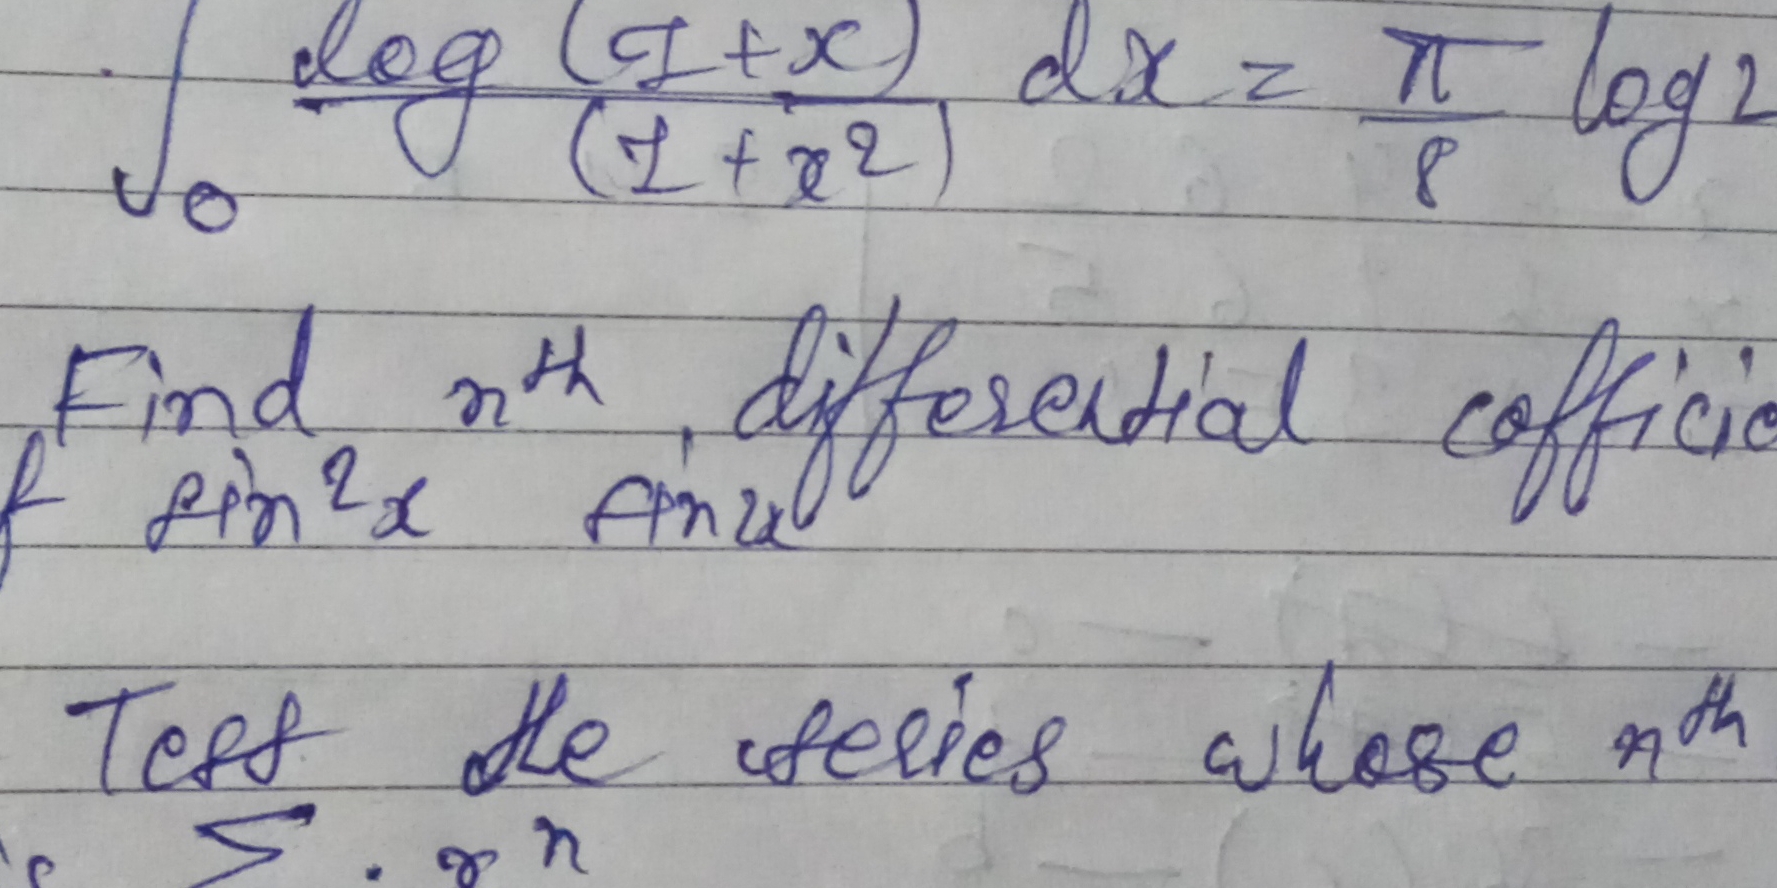 ∫₀ log (1+x) / (1+x²) dx = π/8 log 2
Find nth differential cofficie
f sin²x sin2x
Test the series whose nth
is Σ . xⁿ